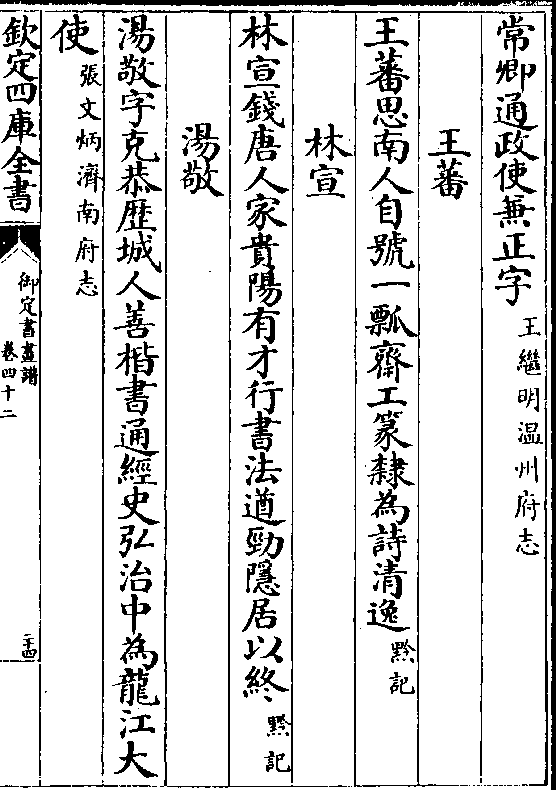 常卿通政使兼正字王繼明温州府志
王蕃
王蕃思南人自號一瓢齋工篆隸為詩清逸黔記
林宣
林宣錢唐人家貴陽有才行書法遒勁隱居以終黔記
湯敬
湯敬字克恭歷城人善楷書通經史弘治中為龍江大
使張文炳濟南府志
欽定四庫全書
御定書畫譜
卷四十二
二十四